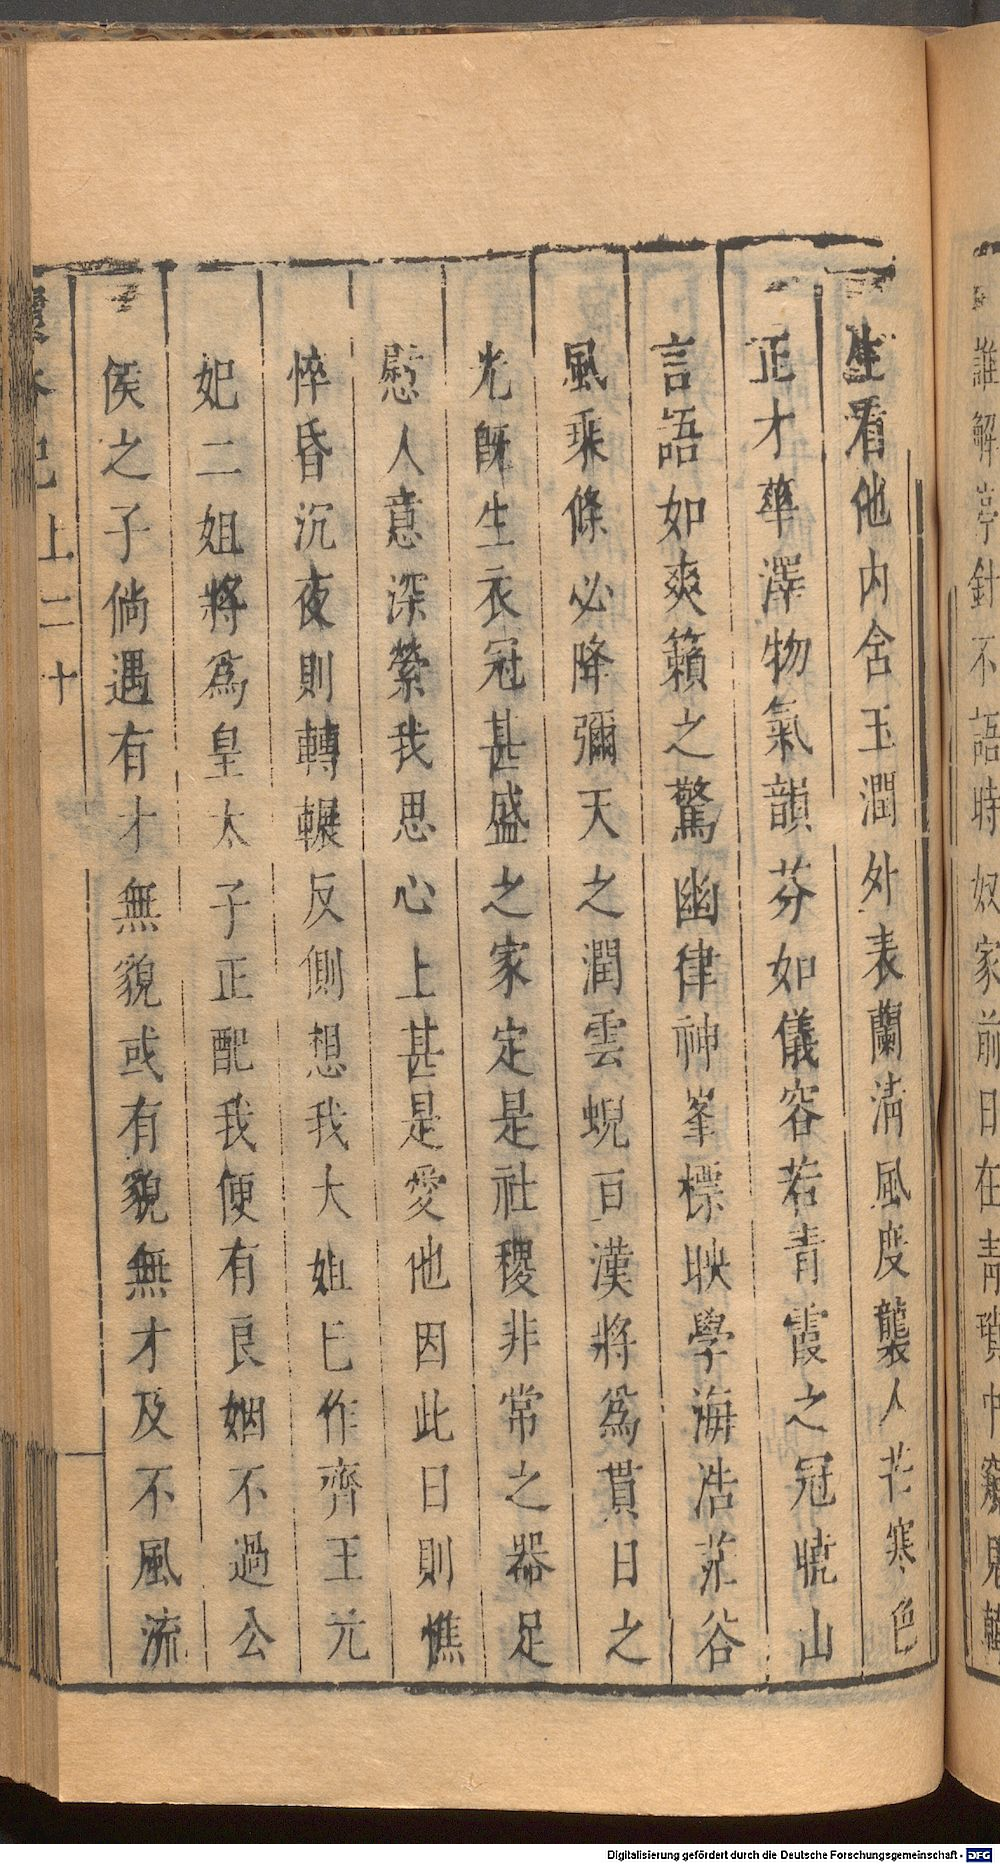 誰解亭針不語時奴家前日在青瑣中窺見韓
生看他内含玉潤外表蘭清風度襲人花寒色
正才華澤物氣韻芬如儀容若青霞之冠曉山
言語如爽籟之驚幽律神峯標映學海浩茫谷
風乘條必降彌天之潤雲蜺亘漢將爲貫日之
光既生衣冠甚盛之家定是社稷非常之器足
慰人意深縈我思心上甚是愛他因此日則憔
悴昏沉夜則轉輾反側想我大姐已作齊王元
妃二姐將爲皇太子正配我便有良姻不過公
侯之子倘遇有才無貌或有貌無才及不風流
上二十
Digitalisierung gefördert durch die Deutsche Forschungsgemeinschaft - DFG